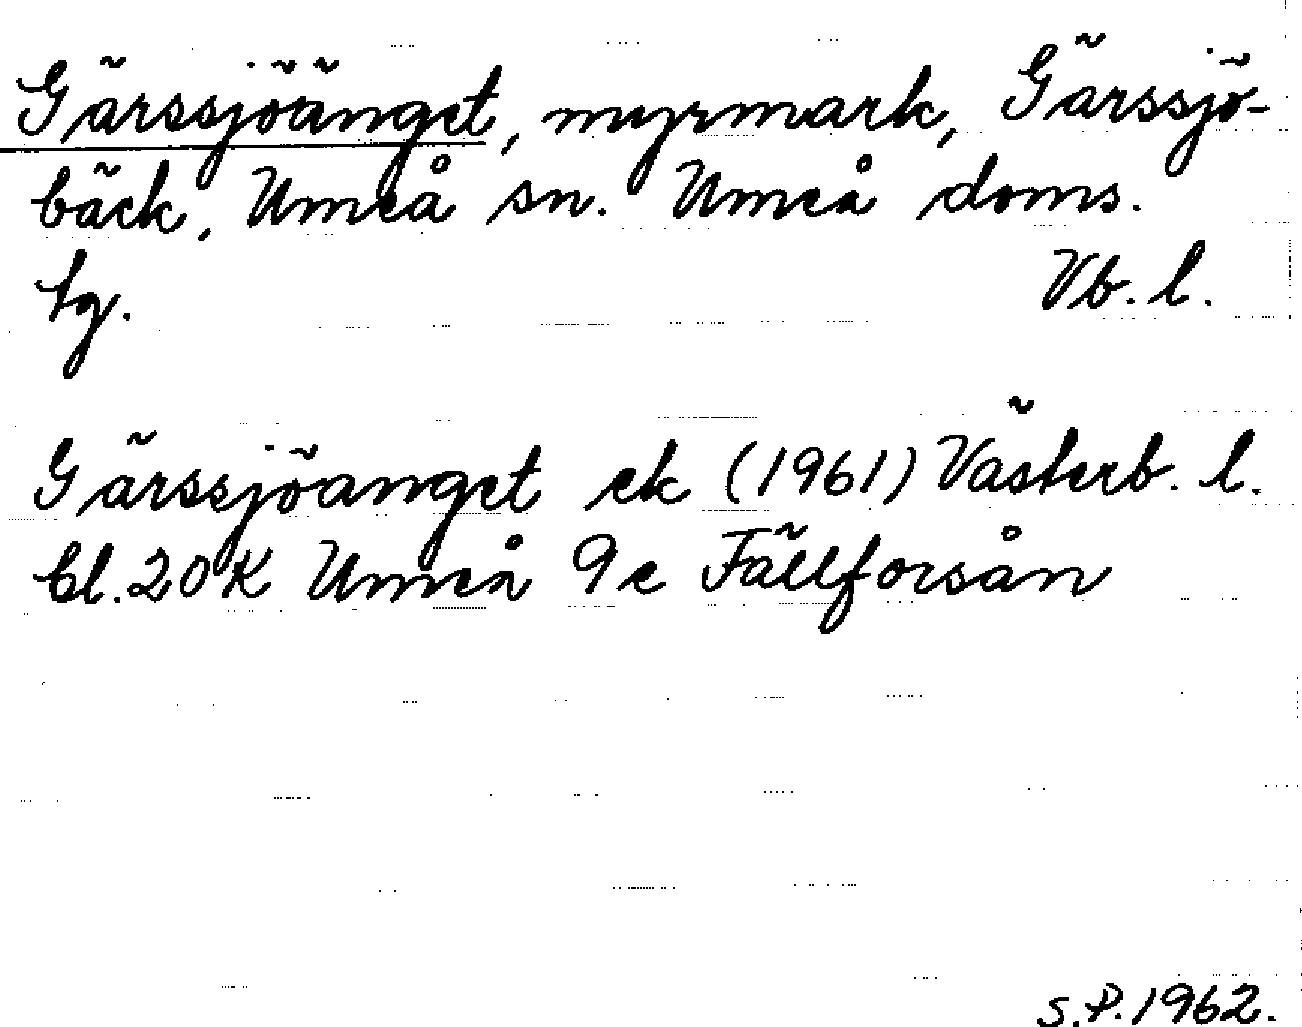 Gärssjöänget, myrmark, Gärssjö-
bäck, Umeå sn. Umeå doms.
tg. Vb. l.
Gärssjöanget ek (1961) Västerb. l.
bl. 20K Umeå 9e Fällforsån
S.P. 1962.